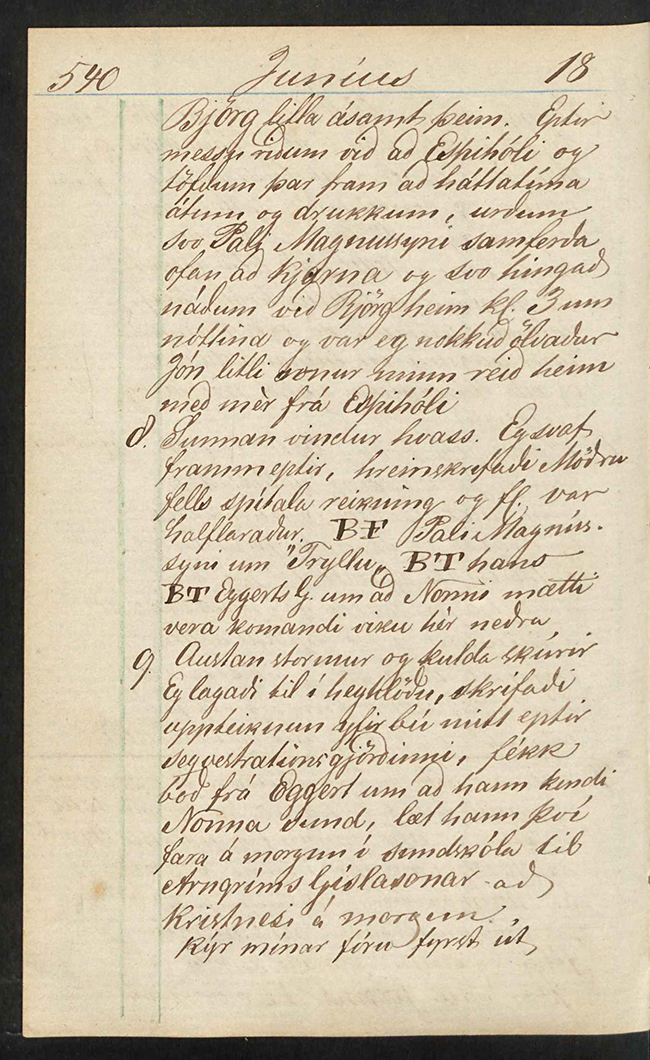 540 Juníus 18
Björg litla ásamt þeim. Eptir
messu riðum við að Espihóli og
töfðum þar fram að háttatíma
átum og drukkum, urðum
svo Páli Magnussyni samferða
ofan að Kjarna og svo hingað
náðum við Björg heim kl. 3 um
nóttina og var eg nokkuð ölvaður
Jón litli sonur minn reið heim
með mèr frá Espihóli
8. Sunnan vindur hvass. Eg svaf
frammeptir, hreinskrifaði Möðru
fells spítala reikning og fl. var
halflasaður. BF Páli Magnús-
syni um "Tryllu„ BT hans
BT Eggerts G. um að Nonni mætti
vera komandi viku hèr neðra
9. Austan stormur og kulda skúrir
Eg lagaði til í heyhlöðu, skrifaði
uppteiknun yfir bú mitt eptir
seqvestrationsgjörðinni, fékk
boð frá Eggert um að hann kendi
Nonna sund, læt hann því
fara á morgun í sundskóla til
Arngríms Gíslasonar að
Kristnesi á morgun.
Kýr mínar fóru fyrst út